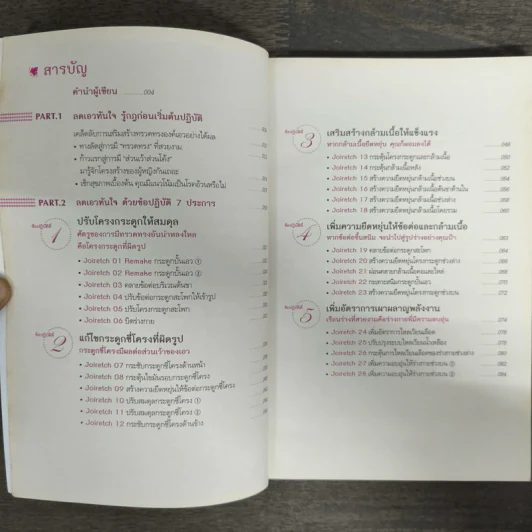 สารบัญ
คำนำผู้เขียน ..........004
PART.1 ลดเอวทันใจ รู้กฎก่อนเริ่มต้นปฏิบัติ
เคล็ดลับการเสริมสร้างทรวดทรงองค์เอวอย่างได้ผล
• ทางลัดสู่การมี "ทรวดทรง" ที่สวยงาม
• ก้าวแรกสู่การมี "ส่วนเว้าส่วนโค้ง"
มารู้จักโครงสร้างของผู้หญิงกันเถอะ
• เช็กสุขภาพเบื้องต้น คุณมีแนวโน้มเป็นโรคอ้วนหรือไม่
PART.2 ลดเอวทันใจ ด้วยข้อปฏิบัติ 7 ประการ
ข้อปฏิบัติที่
1
ปรับโครงกระดูกให้สมดุล
ศัตรูของการมีทรวดทรงอันน่าหลงใหล
คือโครงกระดูกที่ผิดรูป
• Joiretch 01 Remake กระดูกปั้นเอว ①
• Joiretch 02 Remake กระดูกปั้นเอว ②
• Joiretch 03 คลายข้อต่อบริเวณต้นขา
• Joiretch 04 ปรับข้อต่อกระดูกสะโพกให้เข้ารูป
• Joiretch 05 ปรับโครงกระดูกสะโพก
• Joiretch 06 บิดร่างกาย
ข้อปฏิบัติที่
2
แก้ไขกระดูกซี่โครงที่ผิดรูป
กระดูกซี่โครงมีผลต่อส่วนเว้าของเอว
• Joiretch 07 กระชับกระดูกซี่โครงด้านหน้า
• Joiretch 08 กระตุ้นไขมันรอบกระดูกซี่โครง
• Joiretch 09 สร้างความยืดหยุ่นให้ข้อต่อกระดูกซี่โครง
• Joiretch 10 ปรับสมดุลกระดูกซี่โครง ①
• Joiretch 11 ปรับสมดุลกระดูกซี่โครง ②
• Joiretch 12 กระชับกระดูกซี่โครงด้านข้าง
ข้อปฏิบัติที่
3
เสริมสร้างกล้ามเนื้อให้แข็งแรง
หากกล้ามเนื้อยืดหยุ่น คุณก็ผอมลงได้
• Joiretch 13 กระตุ้นโครงกระดูกและกล้ามเนื้อ
• Joiretch 14 กระตุ้นกล้ามเนื้อหลัง
• Joiretch 15 สร้างความยืดหยุ่นกล้ามเนื้อช่วงบน
• Joiretch 16 สร้างความยืดหยุ่นกล้ามเนื้อต้นขาด้านใน
• Joiretch 17 สร้างความยืดหยุ่นกล้ามเนื้อช่วงล่าง
• Joiretch 18 สร้างความยืดหยุ่นกล้ามเนื้อโดยรวม
ข้อปฏิบัติที่
4
เพิ่มความยืดหยุ่นให้ข้อต่อและกล้ามเนื้อ
• Joiretch 19 คลายข้อต่อกระดูกสะโพก
• Joiretch 20 สร้างความยืดหยุ่นโครงกระดูกช่วงล่าง
• Joiretch 21 ผ่อนคลายกล้ามเนื้อคอและไหล่
• Joiretch 22
• Joiretch 23 สร้างความยืดหยุ่นโครงกระดูกช่วงบน
ข้อปฏิบัติที่
5
เพิ่มอัตราการเผาผลาญพลังงาน
เรือนร่างที่สวยงามคือร่างกายที่มีความอบอุ่น
• Joiretch 24 เพิ่มอัตราการไหลเวียนเลือด
• Joiretch 25 ปรับปรุงระบบไหลเวียนน้ำเหลือง
• Joiretch 26
• Joiretch 27 เพิ่มความอบอุ่นให้ร่างกายช่วงบน ①
• Joiretch 28 เพิ่มความอบอุ่นให้ร่างกายช่วงบน ②